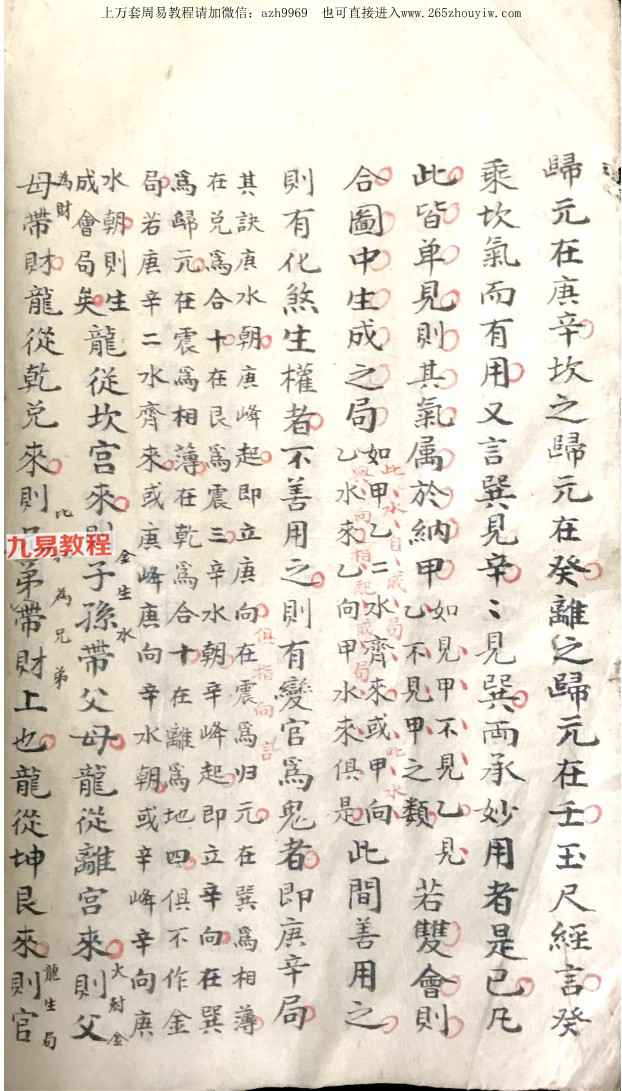 上万套周易教程请加微信：azh9969 也可直接进入www.265zhouyiw.com
歸元在庚辛坎之歸元在癸離之歸元在壬玉尺經言癸
乘坎氣而有用又言巽見辛〻見巽両承妙用者是已凡
此皆单見則其氣属於納甲如見甲不見乙見乙不見甲之類若雙會則
合圖中生成之局如甲乙二水齊來或甲向乙水來乙向甲水來俱是此間善用之
此水自成局此水與向相起成局
則有化煞生權者不善用之則有變官爲鬼者即庚辛局
其訣庚水朝庚峰起即立庚向在震爲归元在巽爲相薄
俱指向言
在兑爲合十在艮爲震三辛水朝辛峰起即立辛向在巽
爲歸元在震爲相薄在乾爲合十在離爲地四俱不作金
局若庚辛二水齊來或庚峰庚向辛水朝或辛峰辛向庚
水朝則生成會局矣龍從坎宮來則子孫帶父母龍從離宮來則父
金生水
火尅金
母帶財龍從乾兑來則兄弟帶財上也龍從坤艮來則官
為財
比為兄弟
龍生局
九易教程